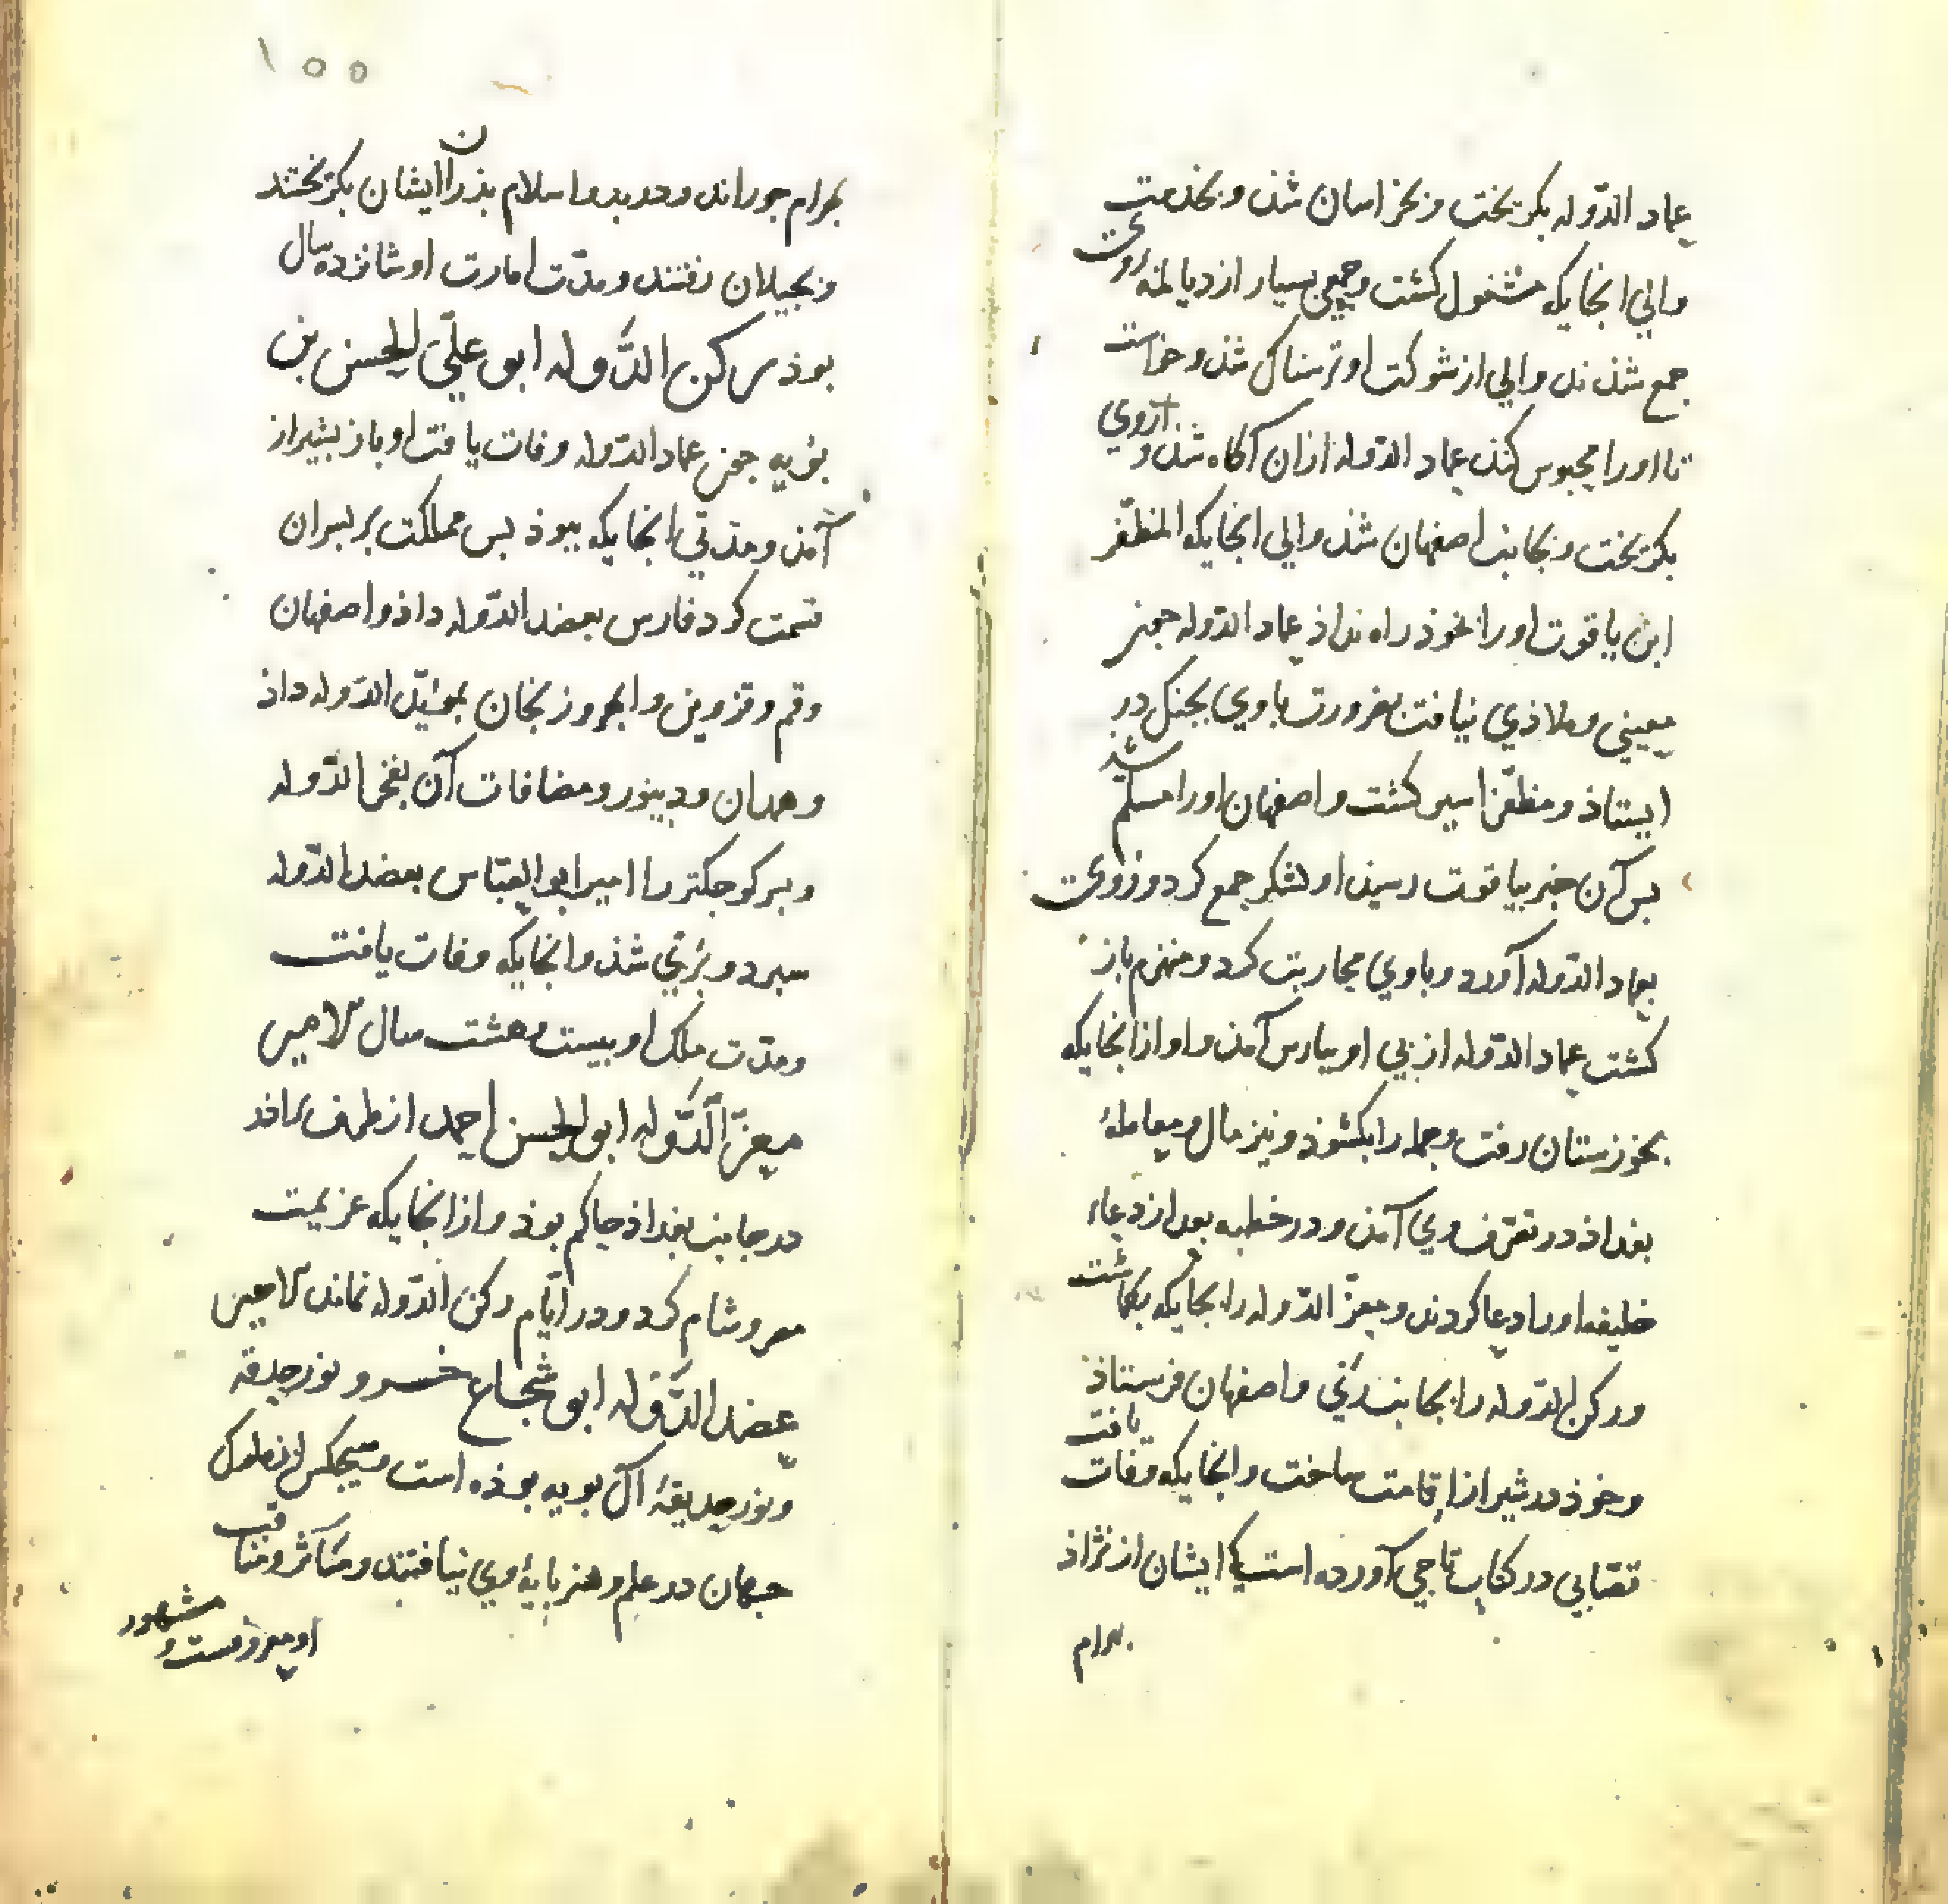 عماد الدّوله بکریخت و بخراسان شذ و بخدمت
والي انجایکه مشغول کشت و جمعي بسیار از دیالمه بروي
جمع شذند و والي از شوکت او ترسناک شذ و خواست
تا او را محبوس کند عماد الدّوله ازان آکاه شذ و از وي
بکریخت و بجانب اصفهان شذ و والي انجایکه المظفّر
ابن یاقوت او را بخوذ راه نداذ عماد الدّوله چون
معیني و ملاذي نیافت بضرورت با وي بجنک در
ایستاذ و مظفّر اسیر کشت و اصفهان او را مسلّم شذ
بس آن خبر بیاقوت رسیذ او لشکر جمع کرد و روي
بعماد الدّوله آورد و با وي محاربت کرد و منهزم باز
کشت عماد الدّوله از بي او ببارس آمذ و او از انجایکه
بخوزستان رفت و جمله را بکشوذ و نیز مال و معاملهٔ
بغداذ در تصرّف وي آمذ و در خطبه بعد از دعاء
خلیفه او را دعا کردند و معزّ الدّوله را بجایکه بکماشت
و رکن الدّوله را بجانب ري و اصفهان فرستاذ
و خوذ در شیراز اقامت ساخت و انجایکه وفات یافت
در کتاب تاجي آورده است که ایشان از نژاذ
بهرام
۱۵۵
بهرام جور اند و در بدو اسلام بذران ایشان بکریختند
و بجیلان رفتند و مدّت امارت او شانزده سال
بوذ رکن الدّوله ابو عليّ الحسن بن
بویه چون عماد الدّوله وفات یافت او باز بشیراز
آمذ و مدّتي انجایکه ببوذ بس مملکت بر بسران
قسمت کرد فارس بعضد الدّوله داذ و اصفهان
و قم و قزوین و ابهر و زنجان بمؤیّد الدّوله داذ
و همدان و دینور و مضافات آن بفخر الدّوله
و بسر کوجکتر را امیر ابو العبّاس بعضد الدّوله
سبرد و بري شذ و انجایکه وفات یافت
و مدّت ملک او بیست و هشت سال الامیر
معزّ الدّوله ابو الحسن احمد از طرف برادر
در جانب بغداذ حاکم بوذ و از انجایکه عزیمت
مصر و شام کرد و در ایّام رکن الدّوله نماند الامیر
عضد الدّوله ابو شجاع خسرو نور حدقه
و نور حدیقهٔ آل بویه بوذه است و هیجکس از ملوک
جهان در علم و هنر بایهٔ وي نیافتند و مآثر و مناقب
او معروفست و مشهور